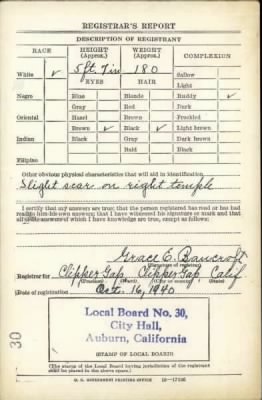 REGISTRAR'S REPORT
DESCRIPTION OF REGISTRANT
RACE HEIGHT (Approx.) WEIGHT (Approx.) COMPLEXION
White ✓ 5ft. 7in 180 Sallow
EYES HAIR Light
Negro Blue Blonde Ruddy ✓
Gray Red Dark
Oriental Hazel Brown Freckled
Brown ✓ Black ✓ Light brown
Indian Black Gray Dark brown
Bald Black
Filipino
Other obvious physical characteristics that will aid in identification
Slight scar on right temple
I certify that my answers are true; that the person registered has read or has had
read to him his own answers; that I have witnessed his signature or mark and that
all of his answers of which I have knowledge are true, except as follows:
Grace E. Bancroft
(Signature of registrar)
Registrar for Clipper Gap, Clipper Gap, Calif
(Precinct) (Ward) (City or county) (State)
Date of registration Oct. 16, 1940
30
Local Board No. 30,
City Hall,
Auburn, California
(STAMP OF LOCAL BOARD)
(The stamp of the Local Board having jurisdiction of the registrant
shall be placed in the above space.)
U. S. GOVERNMENT PRINTING OFFICE